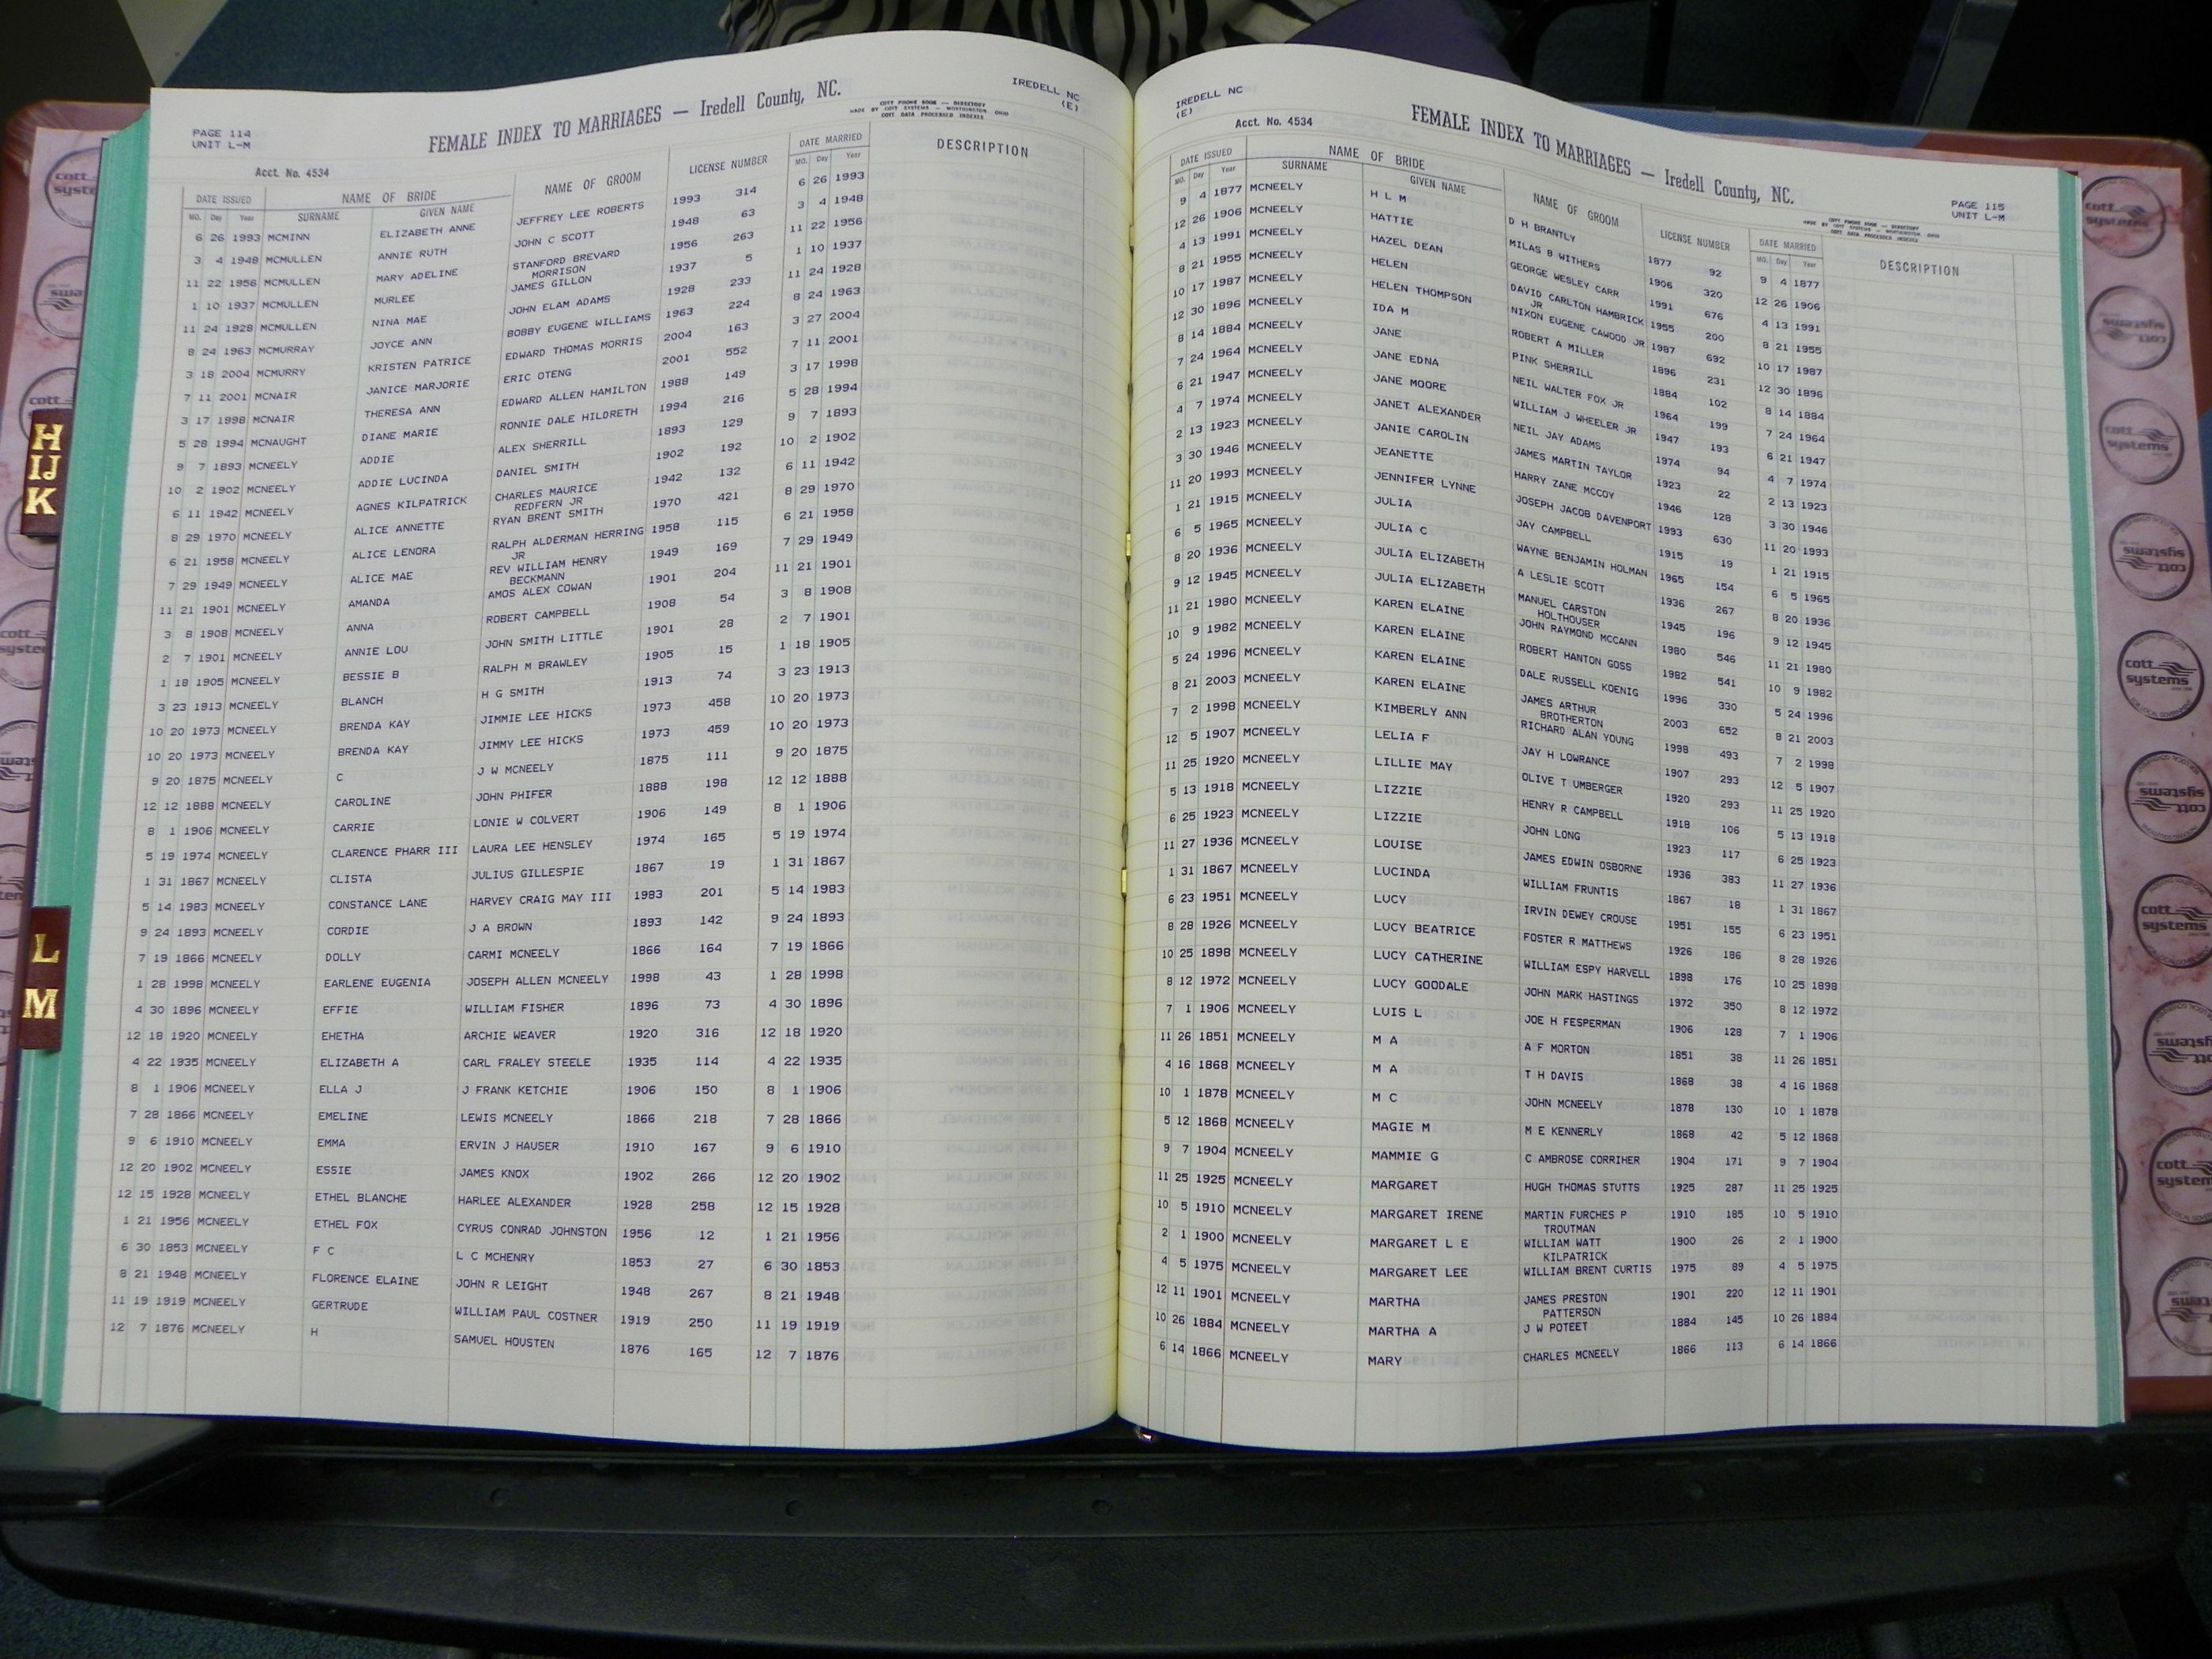 PAGE 114
UNIT L-M
FEMALE INDEX TO MARRIAGES — Iredell County, NC.
MADE BY COTT PHONE BOOK — DIRECTORY
COTT SYSTEMS — WORTHINGTON OHIO
COTT DATA PROCESSED INDEXES
IREDELL NC
(E)
Acct. No. 4534
DATE ISSUED NAME OF BRIDE NAME OF GROOM LICENSE NUMBER DATE MARRIED DESCRIPTION
MO. Day Year SURNAME GIVEN NAME MO. Day Year
6 26 1993 MCMINN ELIZABETH ANNE JEFFREY LEE ROBERTS 1993 314 6 26 1993
3 4 1948 MCMULLEN ANNIE RUTH JOHN C SCOTT 1948 63 3 4 1948
11 22 1956 MCMULLEN MARY ADELINE STANFORD BREVARD 1956 263 11 22 1956
MORRISON
1 10 1937 MCMULLEN MURLEE JAMES GILLON 1937 5 1 10 1937
11 24 1928 MCMULLEN NINA MAE JOHN ELAM ADAMS 1928 233 11 24 1928
8 24 1963 MCMURRAY JOYCE ANN BOBBY EUGENE WILLIAMS 1963 224 8 24 1963
3 18 2004 MCMURRY KRISTEN PATRICE EDWARD THOMAS MORRIS 2004 163 3 27 2004
7 11 2001 MCNAIR JANICE MARJORIE ERIC OTENG 2001 552 7 11 2001
3 17 1998 MCNAIR THERESA ANN EDWARD ALLEN HAMILTON 1988 149 3 17 1998
5 28 1994 MCNAUGHT DIANE MARIE RONNIE DALE HILDRETH 1994 216 5 28 1994
9 7 1893 MCNEELY ADDIE ALEX SHERRILL 1893 129 9 7 1893
10 2 1902 MCNEELY ADDIE LUCINDA DANIEL SMITH 1902 192 10 2 1902
6 11 1942 MCNEELY AGNES KILPATRICK CHARLES MAURICE 1942 132 6 11 1942
REDFERN JR
8 29 1970 MCNEELY ALICE ANNETTE RYAN BRENT SMITH 1970 421 8 29 1970
6 21 1958 MCNEELY ALICE LENORA RALPH ALDERMAN HERRING 1958 115 6 21 1958
JR
7 29 1949 MCNEELY ALICE MAE REV WILLIAM HENRY 1949 169 7 29 1949
BECKMANN
11 21 1901 MCNEELY AMANDA AMOS ALEX COWAN 1901 204 11 21 1901
3 8 1908 MCNEELY ANNA ROBERT CAMPBELL 1908 54 3 8 1908
2 7 1901 MCNEELY ANNIE LOU JOHN SMITH LITTLE 1901 28 2 7 1901
1 18 1905 MCNEELY BESSIE B RALPH M BRAWLEY 1905 15 1 18 1905
3 23 1913 MCNEELY BLANCH H G SMITH 1913 74 3 23 1913
10 20 1973 MCNEELY BRENDA KAY JIMMIE LEE HICKS 1973 458 10 20 1973
10 20 1973 MCNEELY BRENDA KAY JIMMY LEE HICKS 1973 459 10 20 1973
9 20 1875 MCNEELY C J W MCNEELY 1875 111 9 20 1875
12 12 1888 MCNEELY CAROLINE JOHN PHIFER 1888 198 12 12 1888
8 1 1906 MCNEELY CARRIE LONIE W COLVERT 1906 149 8 1 1906
5 19 1974 MCNEELY CLARENCE PHARR III LAURA LEE HENSLEY 1974 165 5 19 1974
1 31 1867 MCNEELY CLISTA JULIUS GILLESPIE 1867 19 1 31 1867
5 14 1983 MCNEELY CONSTANCE LANE HARVEY CRAIG MAY III 1983 201 5 14 1983
9 24 1893 MCNEELY CORDIE J A BROWN 1893 142 9 24 1893
7 19 1866 MCNEELY DOLLY CARMI MCNEELY 1866 164 7 19 1866
1 28 1998 MCNEELY EARLENE EUGENIA JOSEPH ALLEN MCNEELY 1998 43 1 28 1998
4 30 1896 MCNEELY EFFIE WILLIAM FISHER 1896 73 4 30 1896
12 18 1920 MCNEELY EHETHA ARCHIE WEAVER 1920 316 12 18 1920
4 22 1935 MCNEELY ELIZABETH A CARL FRALEY STEELE 1935 114 4 22 1935
8 1 1906 MCNEELY ELLA J J FRANK KETCHIE 1906 150 8 1 1906
7 28 1866 MCNEELY EMELINE LEWIS MCNEELY 1866 218 7 28 1866
9 6 1910 MCNEELY EMMA ERVIN J HAUSER 1910 167 9 6 1910
12 20 1902 MCNEELY ESSIE JAMES KNOX 1902 266 12 20 1902
12 15 1928 MCNEELY ETHEL BLANCHE HARLEE ALEXANDER 1928 258 12 15 1928
1 21 1956 MCNEELY ETHEL FOX CYRUS CONRAD JOHNSTON 1956 12 1 21 1956
6 30 1853 MCNEELY F C L C MCHENRY 1853 27 6 30 1853
8 21 1948 MCNEELY FLORENCE ELAINE JOHN R LEIGHT 1948 267 8 21 1948
11 19 1919 MCNEELY GERTRUDE WILLIAM PAUL COSTNER 1919 250 11 19 1919
12 7 1876 MCNEELY H SAMUEL HOUSTEN 1876 165 12 7 1876
IREDELL NC
(E)
Acct. No. 4534
FEMALE INDEX TO MARRIAGES — Iredell County, NC.
MADE BY COTT PHONE BOOK — DIRECTORY
COTT SYSTEMS — WORTHINGTON OHIO
COTT DATA PROCESSED INDEXES
PAGE 115
UNIT L-M
DATE ISSUED NAME OF BRIDE NAME OF GROOM LICENSE NUMBER DATE MARRIED DESCRIPTION
MO. Day Year SURNAME GIVEN NAME MO. Day Year
9 4 1877 MCNEELY H L M D H BRANTLY 1877 92 9 4 1877
12 26 1906 MCNEELY HATTIE MILAS B WITHERS 1906 320 12 26 1906
4 13 1991 MCNEELY HAZEL DEAN GEORGE WESLEY CARR 1991 676 4 13 1991
8 21 1955 MCNEELY HELEN DAVID CARLTON HAMBRICK 1955 200 8 21 1955
JR
10 17 1987 MCNEELY HELEN THOMPSON NIXON EUGENE CAWOOD JR 1987 692 10 17 1987
12 30 1896 MCNEELY IDA M ROBERT A MILLER 1896 231 12 30 1896
8 14 1884 MCNEELY JANE PINK SHERRILL 1884 102 8 14 1884
7 24 1964 MCNEELY JANE EDNA NEIL WALTER FOX JR 1964 199 7 24 1964
6 21 1947 MCNEELY JANE MOORE WILLIAM J WHEELER JR 1947 193 6 21 1947
4 7 1974 MCNEELY JANET ALEXANDER NEIL JAY ADAMS 1974 94 4 7 1974
2 13 1923 MCNEELY JANIE CAROLIN JAMES MARTIN TAYLOR 1923 22 2 13 1923
3 30 1946 MCNEELY JEANETTE HARRY ZANE MCCOY 1946 128 3 30 1946
11 20 1993 MCNEELY JENNIFER LYNNE JOSEPH JACOB DAVENPORT 1993 630 11 20 1993
1 21 1915 MCNEELY JULIA JAY CAMPBELL 1915 19 1 21 1915
6 5 1965 MCNEELY JULIA C WAYNE BENJAMIN HOLMAN 1965 154 6 5 1965
8 20 1936 MCNEELY JULIA ELIZABETH A LESLIE SCOTT 1936 267 8 20 1936
9 12 1945 MCNEELY JULIA ELIZABETH MANUEL CARSTON 1945 196 9 12 1945
HOLTHOUSER
11 21 1980 MCNEELY KAREN ELAINE JOHN RAYMOND MCCANN 1980 546 11 21 1980
10 9 1982 MCNEELY KAREN ELAINE ROBERT HANTON GOSS 1982 541 10 9 1982
5 24 1996 MCNEELY KAREN ELAINE DALE RUSSELL KOENIG 1996 330 5 24 1996
8 21 2003 MCNEELY KAREN ELAINE JAMES ARTHUR 2003 652 8 21 2003
BROTHERTON
7 2 1998 MCNEELY KIMBERLY ANN RICHARD ALAN YOUNG 1998 493 7 2 1998
12 5 1907 MCNEELY LELIA F JAY H LOWRANCE 1907 293 12 5 1907
11 25 1920 MCNEELY LILLIE MAY OLIVE T UMBERGER 1920 293 11 25 1920
5 13 1918 MCNEELY LIZZIE HENRY R CAMPBELL 1918 106 5 13 1918
6 25 1923 MCNEELY LIZZIE JOHN LONG 1923 117 6 25 1923
11 27 1936 MCNEELY LOUISE JAMES EDWIN OSBORNE 1936 383 11 27 1936
1 31 1867 MCNEELY LUCINDA WILLIAM FRUNTIS 1867 18 1 31 1867
6 23 1951 MCNEELY LUCY IRVIN DEWEY CROUSE 1951 155 6 23 1951
8 28 1926 MCNEELY LUCY BEATRICE FOSTER R MATTHEWS 1926 186 8 28 1926
10 25 1898 MCNEELY LUCY CATHERINE WILLIAM ESPY HARVELL 1898 176 10 25 1898
8 12 1972 MCNEELY LUCY GOODALE JOHN MARK HASTINGS 1972 350 8 12 1972
7 1 1906 MCNEELY LUIS L JOE H FESPERMAN 1906 128 7 1 1906
11 26 1851 MCNEELY M A A F MORTON 1851 38 11 26 1851
4 16 1868 MCNEELY M A T H DAVIS 1868 38 4 16 1868
10 1 1878 MCNEELY M C JOHN MCNEELY 1878 130 10 1 1878
5 12 1868 MCNEELY MAGIE M M E KENNERLY 1868 42 5 12 1868
9 7 1904 MCNEELY MAMMIE G C AMBROSE CORRIHER 1904 171 9 7 1904
11 25 1925 MCNEELY MARGARET HUGH THOMAS STUTTS 1925 287 11 25 1925
10 5 1910 MCNEELY MARGARET IRENE MARTIN FURCHES P 1910 185 10 5 1910
TROUTMAN
2 1 1900 MCNEELY MARGARET L E WILLIAM WATT 1900 26 2 1 1900
KILPATRICK
4 5 1975 MCNEELY MARGARET LEE WILLIAM BRENT CURTIS 1975 89 4 5 1975
12 11 1901 MCNEELY MARTHA JAMES PRESTON 1901 220 12 11 1901
PATTERSON
10 26 1884 MCNEELY MARTHA A J W POTEET 1884 145 10 26 1884
6 14 1866 MCNEELY MARY CHARLES MCNEELY 1866 113 6 14 1866
H
IJ
K
L
M
cott
systems